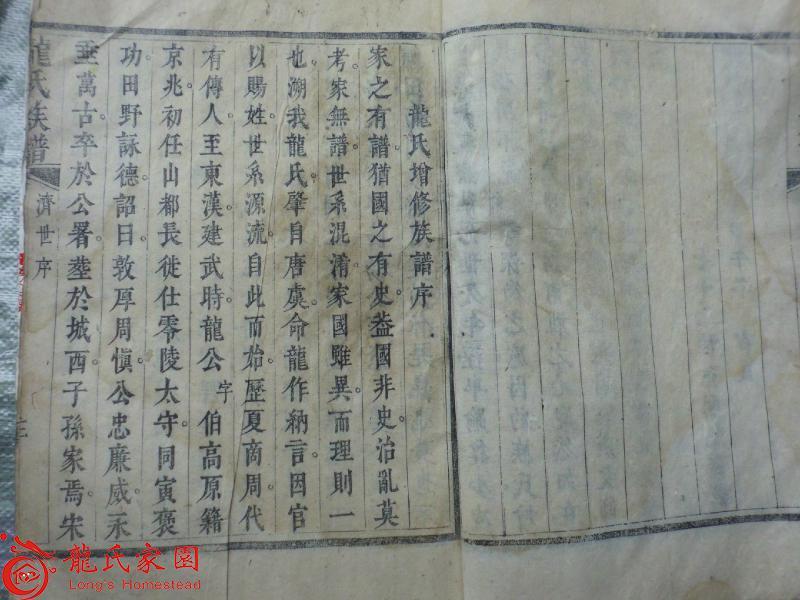 龍氏增修族譜序
家之有譜猶國之有史葢國非史治亂莫
考家無譜世系混淆家國雖異而理則一
也溯我龍氏肇自唐虞命龍作納言因官
以賜姓世系源流自此而始歷夏商周代
有傳人至東漢建武時龍公字伯高原籍
京兆初任山都長徙仕零陵太守同寅褒
功田野詠德詔曰敦厚周愼公忠廉威永
垂萬古卒於公署塟於城西子孫家焉宋
龍氏族譜
濟世序
龍氏家園
Long's Homestead